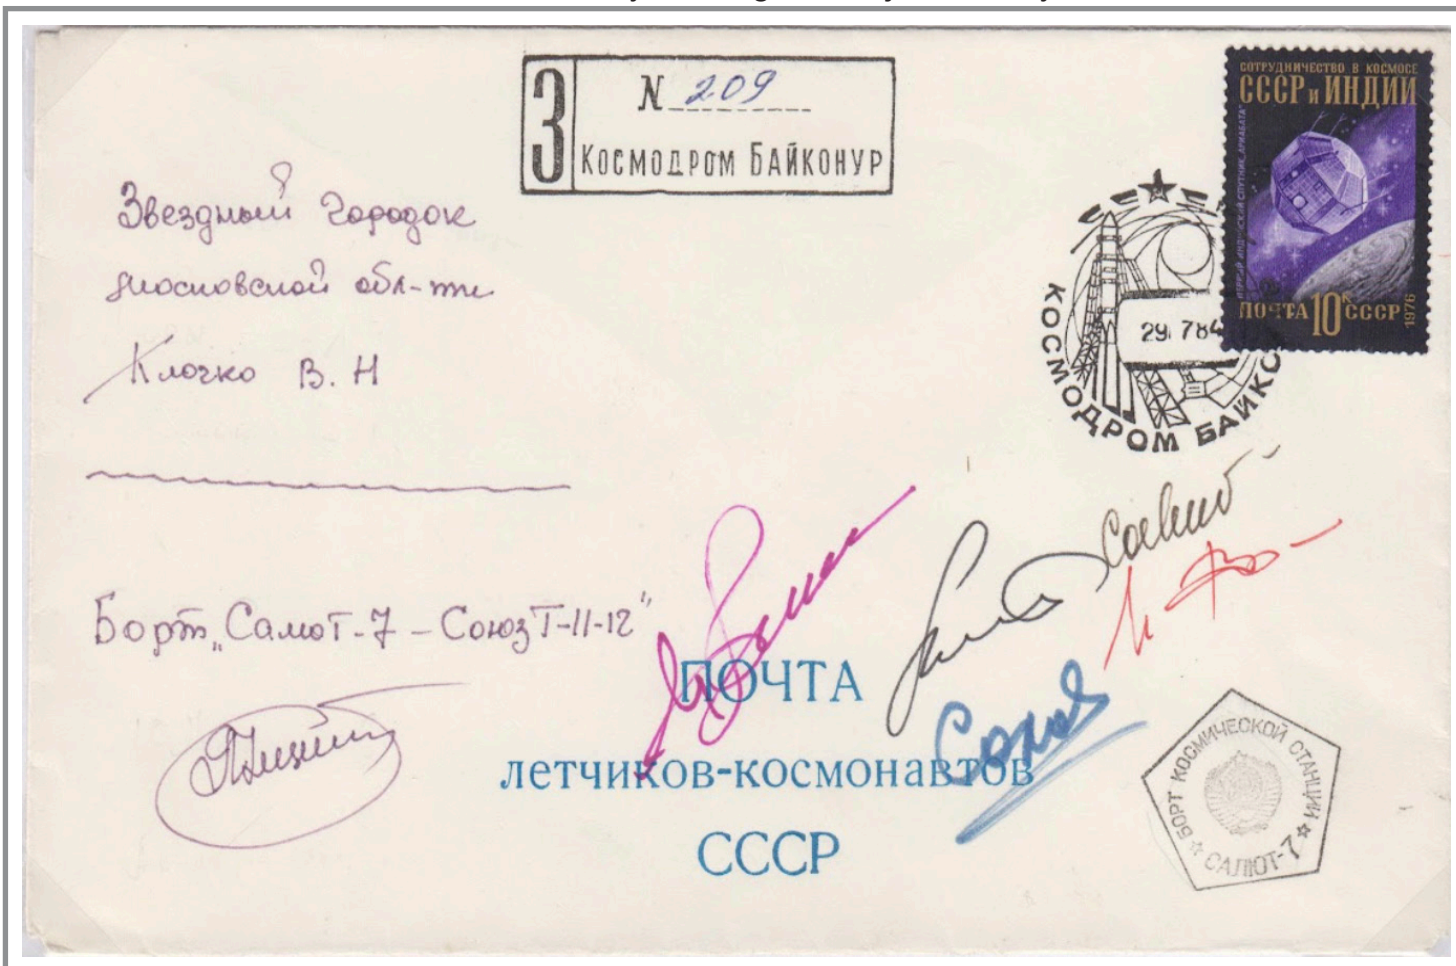 З
N 209
Космодром Байконур
СОТРУДНИЧЕСТВО В КОСМОСЕ
СССР и ИНДИИ
ПОЧТА 10К СССР
1976
Звездный городок
Московской обл-ти
Клочко В. Н
29 7 84
КОСМОДРОМ БАЙКО
Борт „Салют-7 – Союз Т-11-12"
ПОЧТА
летчиков-космонавтов
СССР
БОРТ КОСМИЧЕСКОЙ СТАНЦИИ
САЛЮТ-7